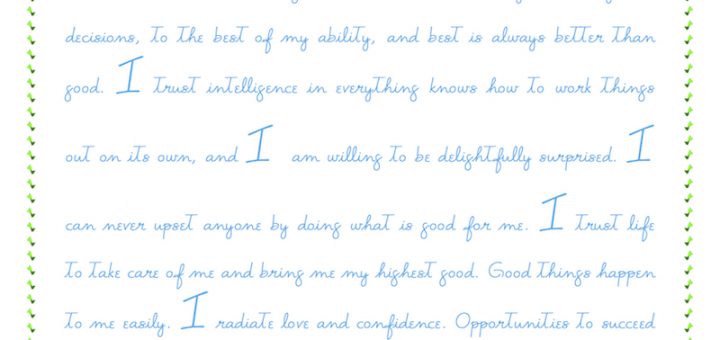 decisions, to the best of my ability, and best is always better than
good. I trust intelligence in everything knows how to work things
out on its own, and I am willing to be delightfully surprised. I
can never upset anyone by doing what is good for me. I trust life
to take care of me and bring me my highest good. Good things happen
to me easily. I radiate love and confidence. Opportunities to succeed